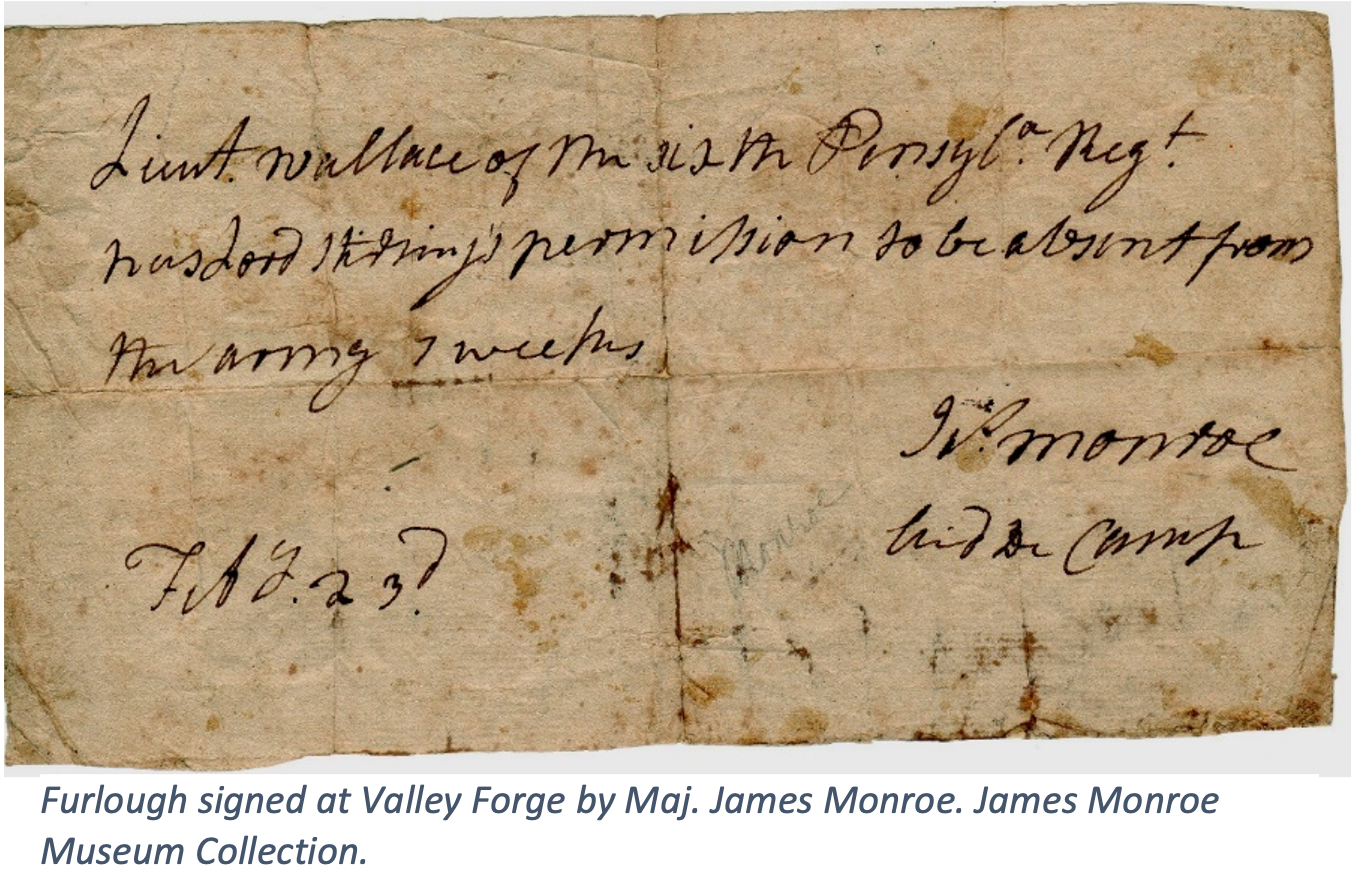 Lieut. Wallace of the sixth Pensylª. Regt.
has Lord Stirling's permission to be absent from
the army 7 weeks
Jas. Monroe
Aid De Camp
Feby. 23d.
Monroe
Furlough signed at Valley Forge by Maj. James Monroe. James Monroe
Museum Collection.